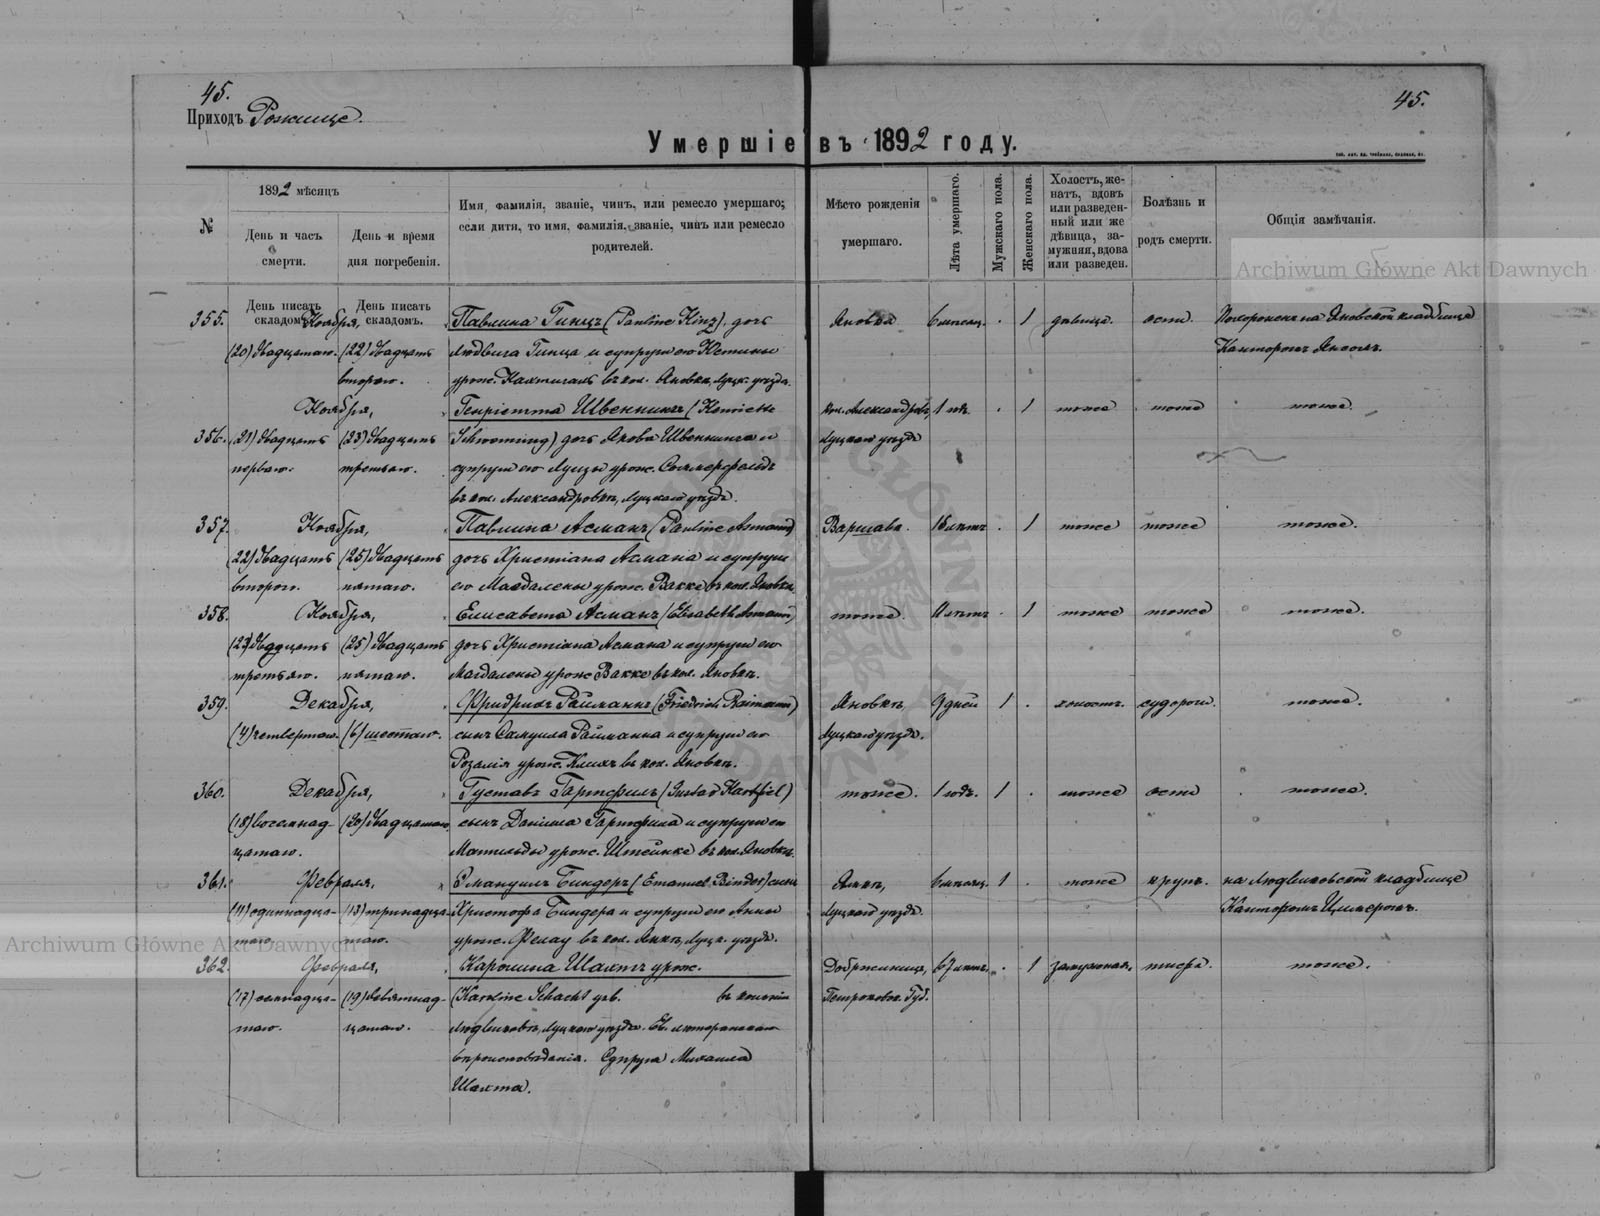 45.
45.
Приходъ Рожище.
Умершіе въ 1892 году.
№
1892 мѣсяцъ
День и часъ смерти.
День и время дня погребенія.
Имя, фамилія, званіе, чинъ, или ремесло умершаго;
если дитя, то имя, фамилія, званіе, чинъ или ремесло
родителей.
Мѣсто рожденія
умершаго.
Лѣта умершаго.
Мужскаго пола.
Женскаго пола.
Холостъ, же-
натъ, вдовъ
или разведен-
ный или же
дѣвица, за-
мужняя, вдова
или разведен.
Болѣзнь и
родъ смерти.
Общія замѣчанія.
Archiwum Główne Akt Dawnych
День писать складомъ.
День писать складомъ.
355. Ноября, Павлина Гинцъ (Pauline Hinz), дочь Яновка 6 мѣсяц. . 1 дѣвица. оспа. Похороненъ на Яновской кладбищѣ
(20) двадцатаго. (22) двадцать Людвига Гинца и супруги его Юстины Канторомъ
второго. урож. Нахтигаль въ кол. Яновкѣ, Луцк. уѣзда.
Ноября, Генріетта Швеннингъ (Henriette кол. Александровк. 1 . 1 тоже тоже тоже.
356. (21) двадцать (23) двадцать Schwenning), дочь Якова Швеннинга и Луцкаго уѣзда
перваго. третьяго. супруги его Луизы урож. Соммерфельдъ
въ кол. Александровкѣ, Луцкаго уѣзда.
357. Ноября, Павлина Асманъ (Pauline Asmann) Варшава. 16 лѣтъ . 1 тоже тоже тоже.
(22) двадцать (25) двадцать дочь Христіана Асмана и супруги
второго. пятаго. его Магдалены урож. Вакке въ кол. Яновкѣ.
358. Ноября, Елисавета Асманъ (Elisabeth Asmann) тоже. 11 лѣтъ . 1 тоже тоже тоже.
(23) двадцать (25) двадцать дочь Христіана Асмана и супруги его
третьяго. пятаго. Магдалены урож. Вакке въ кол. Яновкѣ.
359. Декабря, Фридрихъ Райманнъ (Friedrich Raimann) Яновкѣ, 9 дней 1 . холостъ. судороги. тоже.
(4) четвертаго. (6) шестаго. сынъ Самуила Райманна и супруги его Луцкаго уѣзда.
Розалія урож. въ кол. Яновкѣ.
360. Декабря, Густавъ Гартфиль (Gustav Hartfiel) тоже. 1 годъ. 1 . тоже оспа тоже.
(18) восемнад- (20) двадцатаго. сынъ Даніила Гартфила и супруги его
цатаго. Матильды урож. Штейнке въ кол. Яновкѣ.
361. Февраля, Эмануилъ Биндеръ (Emanuel Binder) сынъ 6 мѣсяц. 1 . тоже крупъ. на Людвиковской кладбищѣ
(11) одиннадца- (13) тринадца- Христофа Биндера и супруги его Анны Луцкаго уѣзда. Канторомъ Цимеромъ.
таго. таго. урож. Фелау въ кол. Луцк. уѣзда.
Archiwum Główne Akt Dawnych
362. Февраля, Каролина Шахтъ урож. 67 лѣтъ. . 1 замужняя. тифъ. тоже.
(17) семнадца- (19) девятнад- (Karoline Schacht geb. въ колоніи Петроковск. Губ.
таго. цатаго. Людвиковкѣ, Луцкаго уѣзда. Ев. лютеранскаго
вѣроисповѣданія. Супруга Михаила
Шахта.